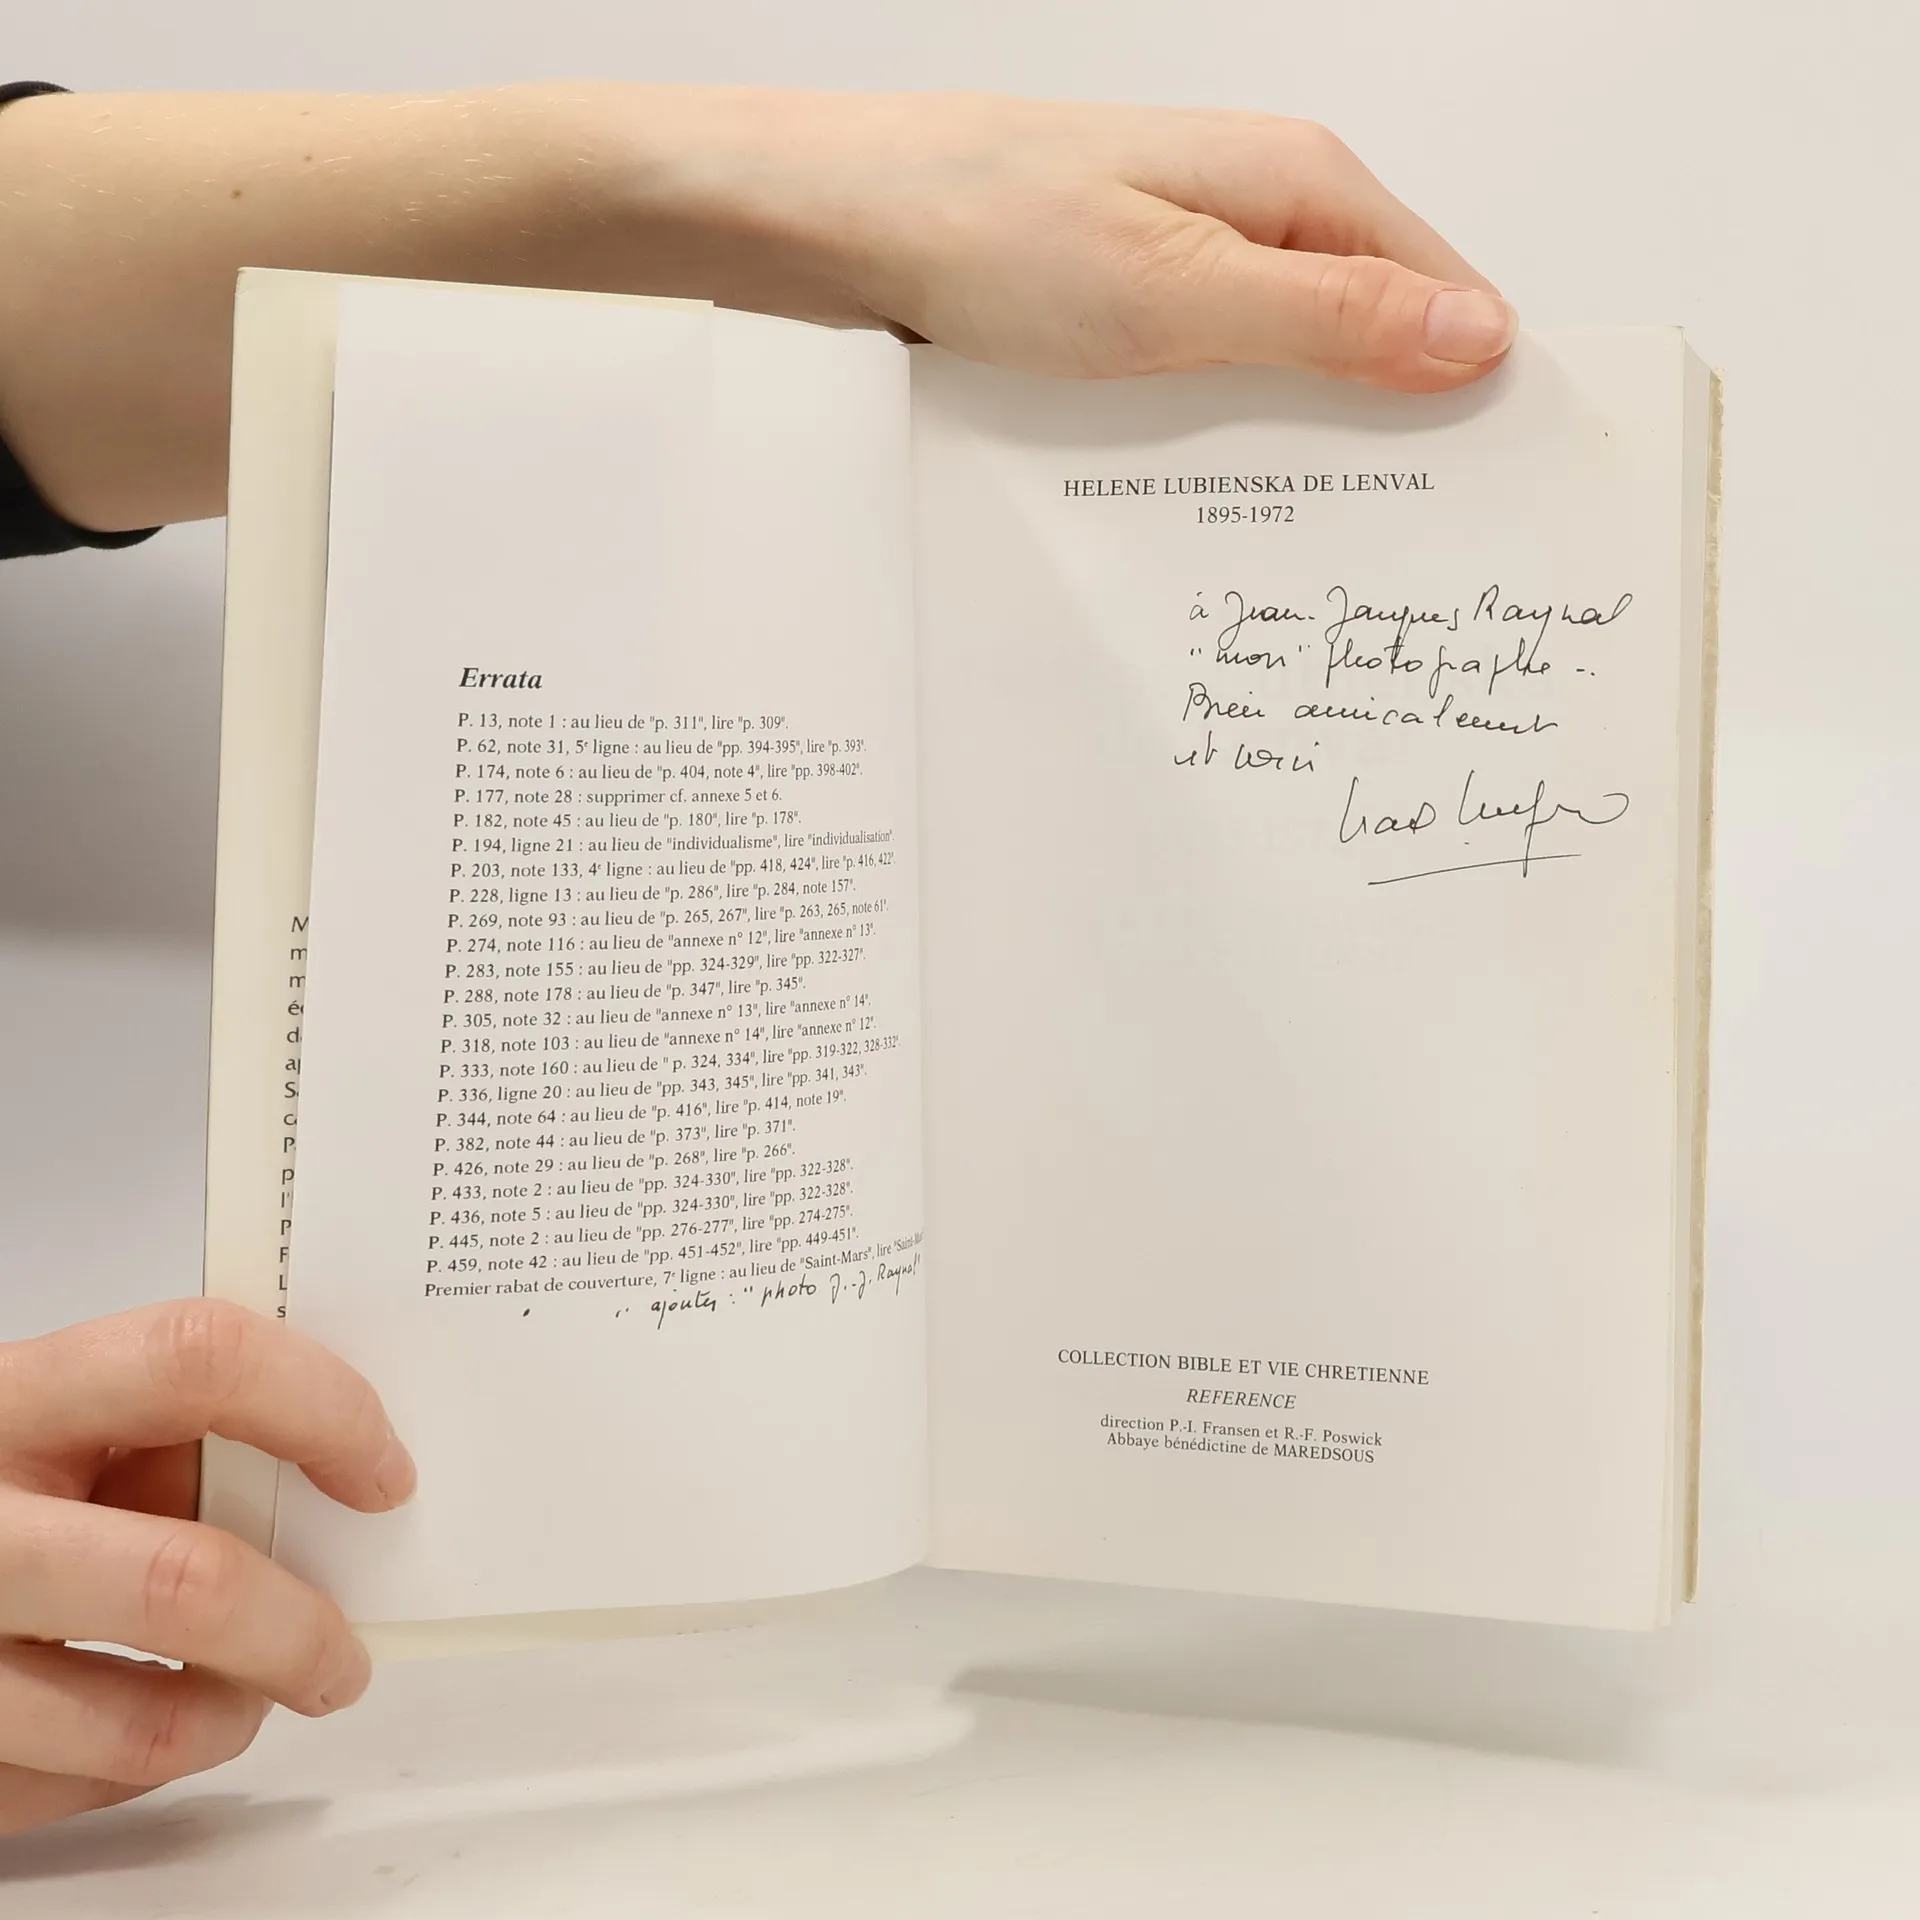 Errata
P. 13, note 1 : au lieu de "p. 311", lire "p. 309".
P. 62, note 31, 5e ligne : au lieu de "pp. 394-395", lire "p. 393".
P. 174, note 6 : au lieu de "p. 404, note 4", lire "pp. 398-402".
P. 177, note 28 : supprimer cf. annexe 5 et 6.
P. 182, note 45 : au lieu de "p. 180", lire "p. 178".
P. 194, ligne 21 : au lieu de "individualisme", lire "individualisation".
P. 203, note 133, 4e ligne : au lieu de "pp. 418, 424", lire "p. 416, 422".
P. 228, ligne 13 : au lieu de "p. 286", lire "p. 284, note 157".
P. 269, note 93 : au lieu de "p. 265, 267", lire "p. 263, 265, note 61".
P. 274, note 116 : au lieu de "annexe n° 12", lire "annexe n° 13".
P. 283, note 155 : au lieu de "pp. 324-329", lire "pp. 322-327".
P. 288, note 178 : au lieu de "p. 347", lire "p. 345".
P. 305, note 32 : au lieu de "annexe n° 13", lire "annexe n° 14".
P. 318, note 103 : au lieu de "annexe n° 14", lire "annexe n° 12".
P. 333, note 160 : au lieu de " p. 324, 334", lire "pp. 319-322, 328-332".
P. 336, ligne 20 : au lieu de "pp. 343, 345", lire "pp. 341, 343".
P. 344, note 64 : au lieu de "p. 416", lire "p. 414, note 19".
P. 382, note 44 : au lieu de "p. 373", lire "p. 371".
P. 426, note 29 : au lieu de "p. 268", lire "p. 266".
P. 433, note 2 : au lieu de "pp. 324-330", lire "pp. 322-328".
P. 436, note 5 : au lieu de "pp. 324-330", lire "pp. 322-328".
P. 445, note 2 : au lieu de "pp. 276-277", lire "pp. 274-275".
P. 459, note 42 : au lieu de "pp. 451-452", lire "pp. 449-451".
Premier rabat de couverture, 7e ligne : au lieu de "Saint-Mars", lire
ajouter : "photo J.-J. Raynal"
M
m
m
é
d
a
S
c
P
p
l'
P
F
L
s
HELENE LUBIENSKA DE LENVAL
1895-1972
à Jean-Jacques Raynal
"mon" photographe -.
Bien amicalement
et
COLLECTION BIBLE ET VIE CHRETIENNE
REFERENCE
direction P.-I. Fransen et R.-F. Poswick
Abbaye bénédictine de MAREDSOUS